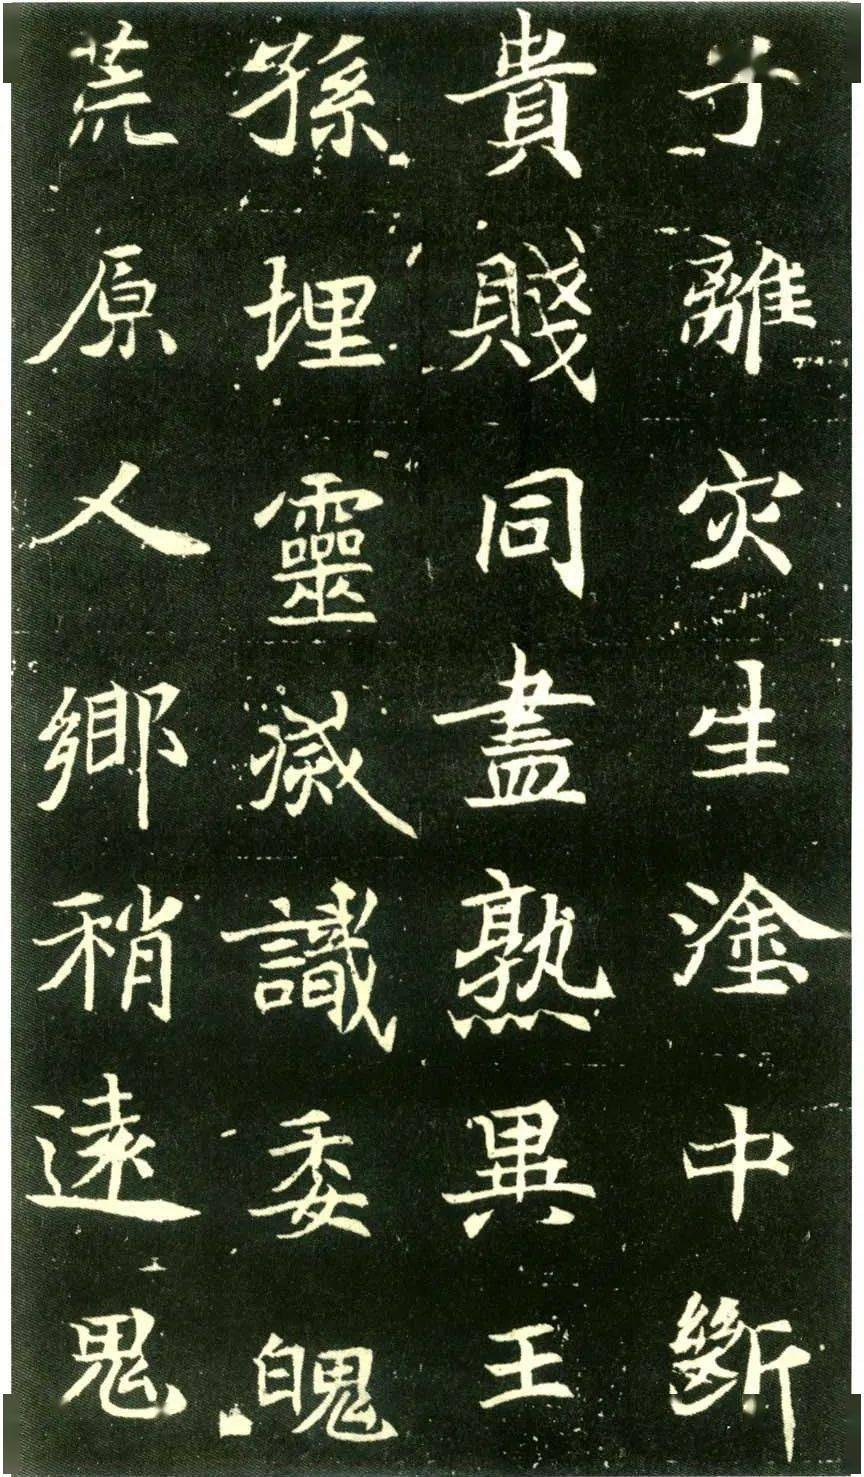 離灾生塗中斷
貴賤同盡熟異王
孫埋靈滅識委魄
荒原人鄉稍遠鬼